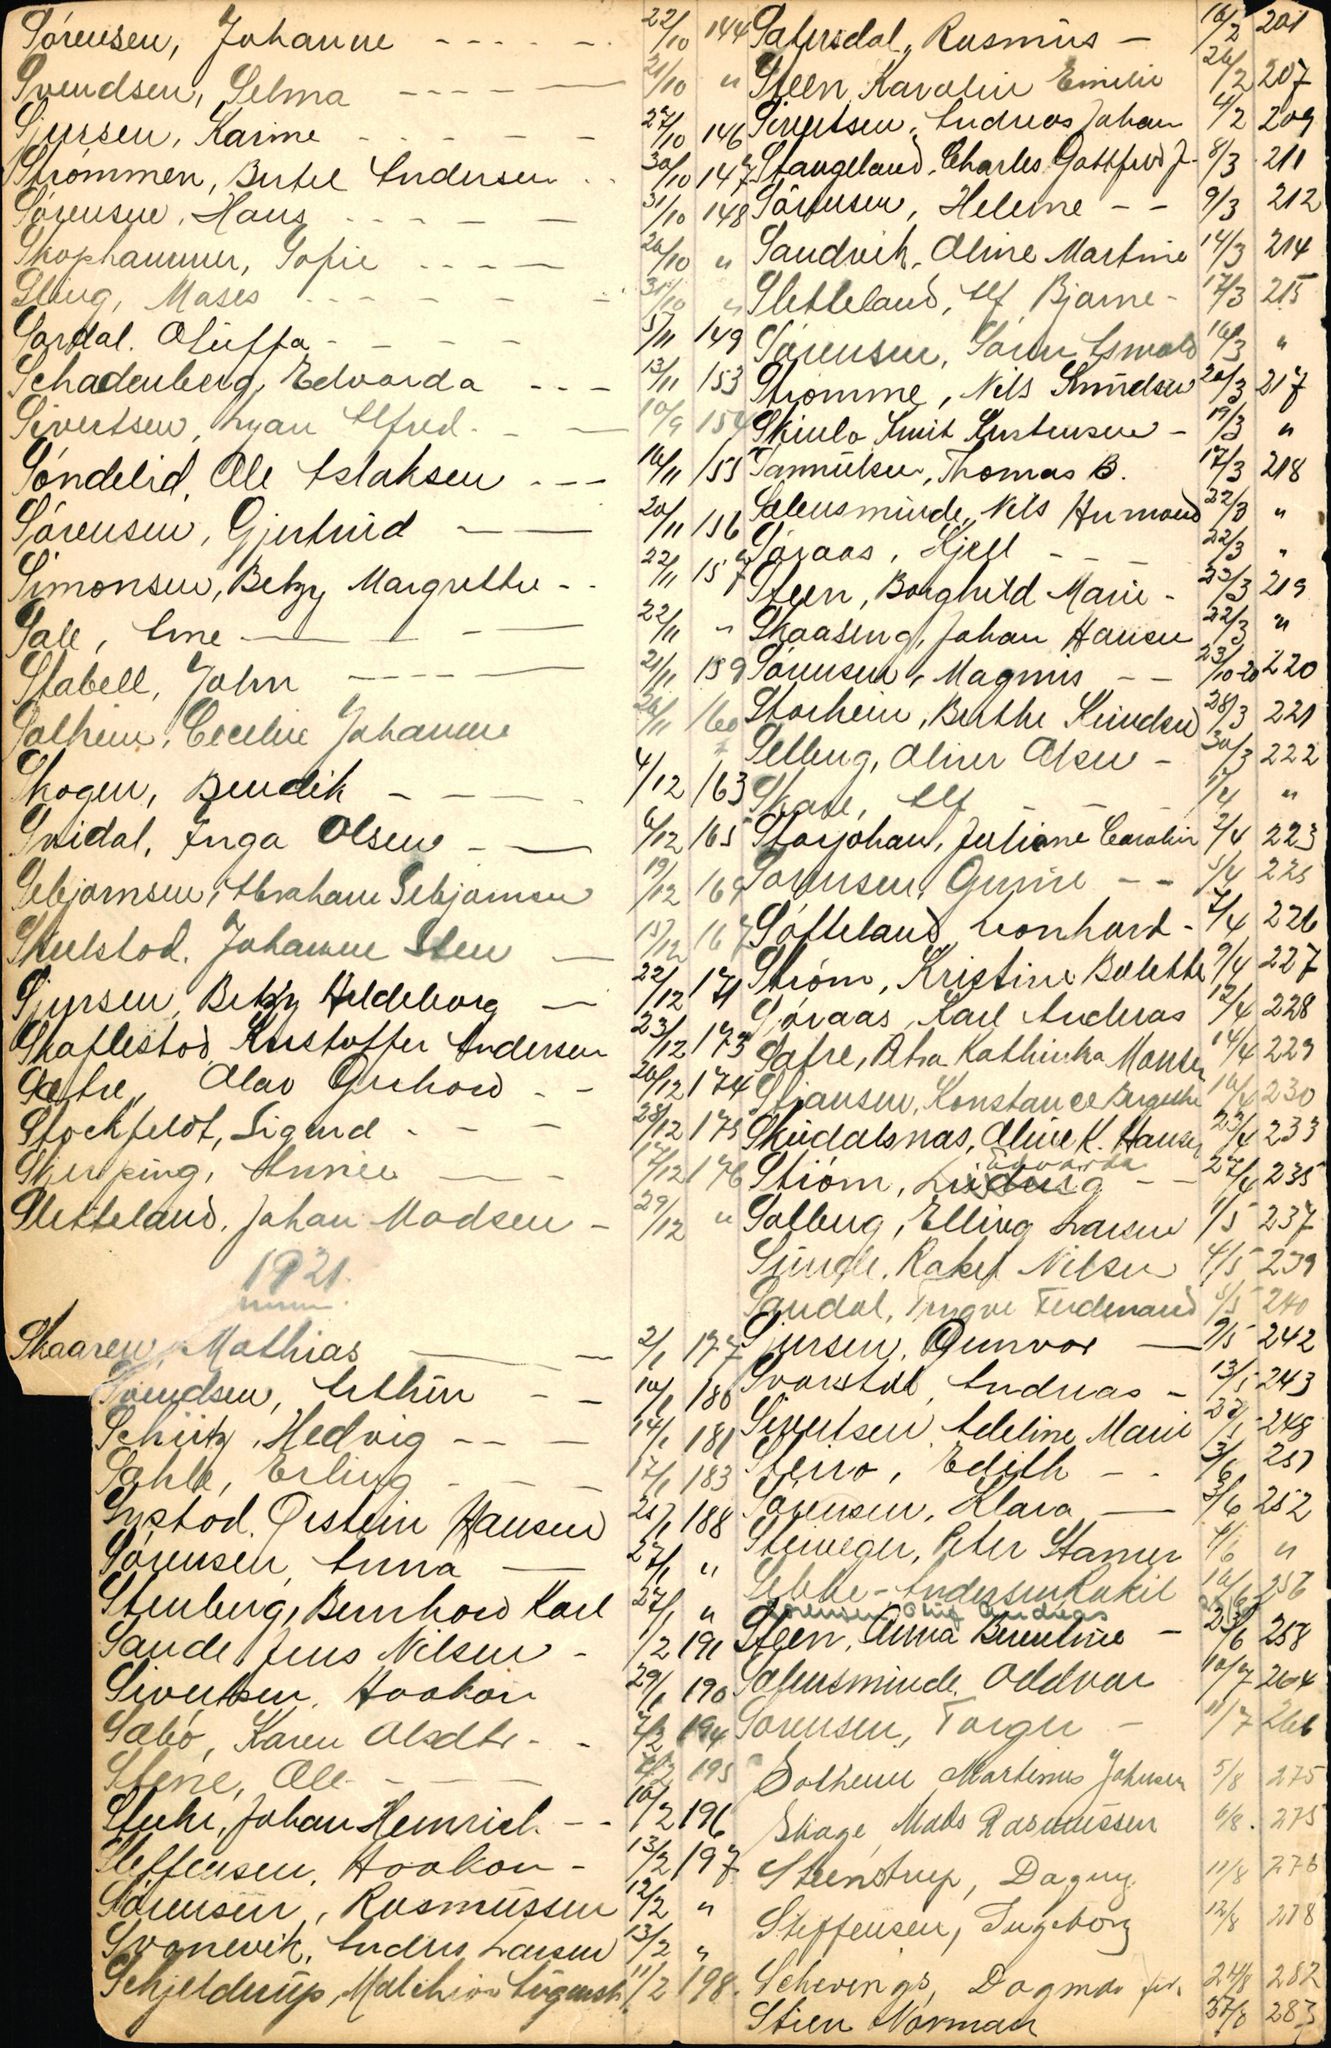 Sørensen, Johanne - - - - - 22/10 144
Svendsen, Selma - - - - 21/10 "
Sjursen, Karine - - - - - 27/10 146
Strømmen, Bertel Andersen - - 30/10 147
Sørensen, Hans - - - - - 31/10 148
Skophammer, Sofie - - - - 26/10 "
Steug, Moses - - - - - 31/10 "
Sordal, Oluffa - - - - 5/11 149
Schadenberg, Edvarda - - - 13/11 153
Sivertsen, Alfred - - 10/9 154
Søndelid, Ole Aslaksen - - - 16/11 155
Sørensen, Gjertrud - - 20/11 156
Simonsen, Betzy Margrethe - - 22/11 157
Sale, Arne - - - 22/11 "
Stabell, John - - - - - 21/11 159
Solheim, Cecelie Johanne 26/11 160
Skogen, Bendik - - - - 4/12 163
Svidal, Inga Olsen - - 6/12 165
Sebjørnsen, Abraham Sebjørnsen 19/12 169
Skulstod, Johanne Sten - 15/12 167
Sjursen, Betzy Hildeborg - 22/12 171
Skaflestod, Kristoffer Andersen 23/12 173
Sætre, Olav Gerhard - - 26/12 174
Stockfeldt, Sigurd - - - 28/12 175
Skerping, Annie - - 17/12 176
Sletteland, Johan Madsen - 29/12 "
1921.
Skaaren, Mathias - - 2/1 177
Svendsen, Arthur - - 10/1 180
Schütz, Hedvig - - - 14/1 181
Sahle, Erling - - - 17/1 183
Systod, Østein Hansen 25/1 188
Sørensen, Anna - 27/1 "
Stenberg, Bernhard Karl 27/1 "
Sande, Jens Nilsen - 1/2 191
Sivertsen, Haakon 29/1 190
Sæbø, Karen Olsdtr - - 7/2 194
Stene, Ole - - - - 195
Stuhr, Johan Heinrich - - 10/2 196
Steffensen, Haakon - 13/2 197
Sørensen, Rasmussen 12/2 "
Svanevik, Anders Larsen 13/2 "
Schjelderup, Melchior August 11/2 198
Satersdal, Rasmus - 16/2 201
Steen, Karoline Emilie 26/2 207
Sivertsen, Andreas Johan 4/2 209
Stangeland, Charles Gottfred J. 8/3 211
Sørensen, Helene - - 9/3 212
Sandvik, Oline Martine 14/3 214
Sletteland, Alf Bjarne - 17/3 215
Sørensen, Søren Oswald 16/3 "
Strømme, Nils Knudsen 20/3 217
Kristensen - 19/3 "
Samuelsen, Thomas B. 17/3 218
Sælensminde, Nils Hermand 22/3 "
Søraas, Kjell - - - 22/3 "
Steen, Borghild Marie - 23/3 219
Skaaseng, Johan Hansen 22/3 "
Sørensen, Magnus - - 23/10-20 220
Storheim, Berthe Knudsen 28/3 221
Selberg, Oliver Olsen - 30/3 222
Skare, Alf - - - 1/4 "
Storjohan, Juliane Carolin 2/4 223
Sørensen, Gunne - - 5/4 225
Softeland, Leonhard - 7/4 226
Strøm, Kristine Bolette 9/4 227
Søraas, Karl Andreas 12/4 228
Sætre, Petra Kathinka Monsen 14/4 229
Stjansen, Konstance Bergithe 16/4 230
Skudalsnæs, Oline K. Hansen 23/4 233
Edvarda
Strøm, Ludvig - - 27/4 235
Solberg, Elling Larsen 1/5 237
Sunde, Rakel Nilsen 4/5 239
Sandal, Trygve Ferdinand 6/5 240
Sjursen, Gunvor - 9/5 242
Svorstøl, Andreas - 13/5 243
Sivertsen, Adeline Marie 27/5 248
Steiro, Edith - - 3/6 251
Sørensen, Klara - 3/6 252
Steineger, Peter Stamer 4/6 "
Sebbe-Andersen Rakil 10/6 256
Sørensen Oluf Andreas
Steen, Anna Berentine - 23/6 258
Sælensminde, Oddvar 10/7 264
Sorensen, Torger - 11/7 266
Solheim Martinus Johnsen 5/8 275
Skage, Mads Rasmussen 6/8 275
Steenstrup, Dagny 11/8 276
Steffensen, Ingeborg 12/8 278
Schevings, Dagmar frk. 24/8 282
Stien Norman 27/8 283